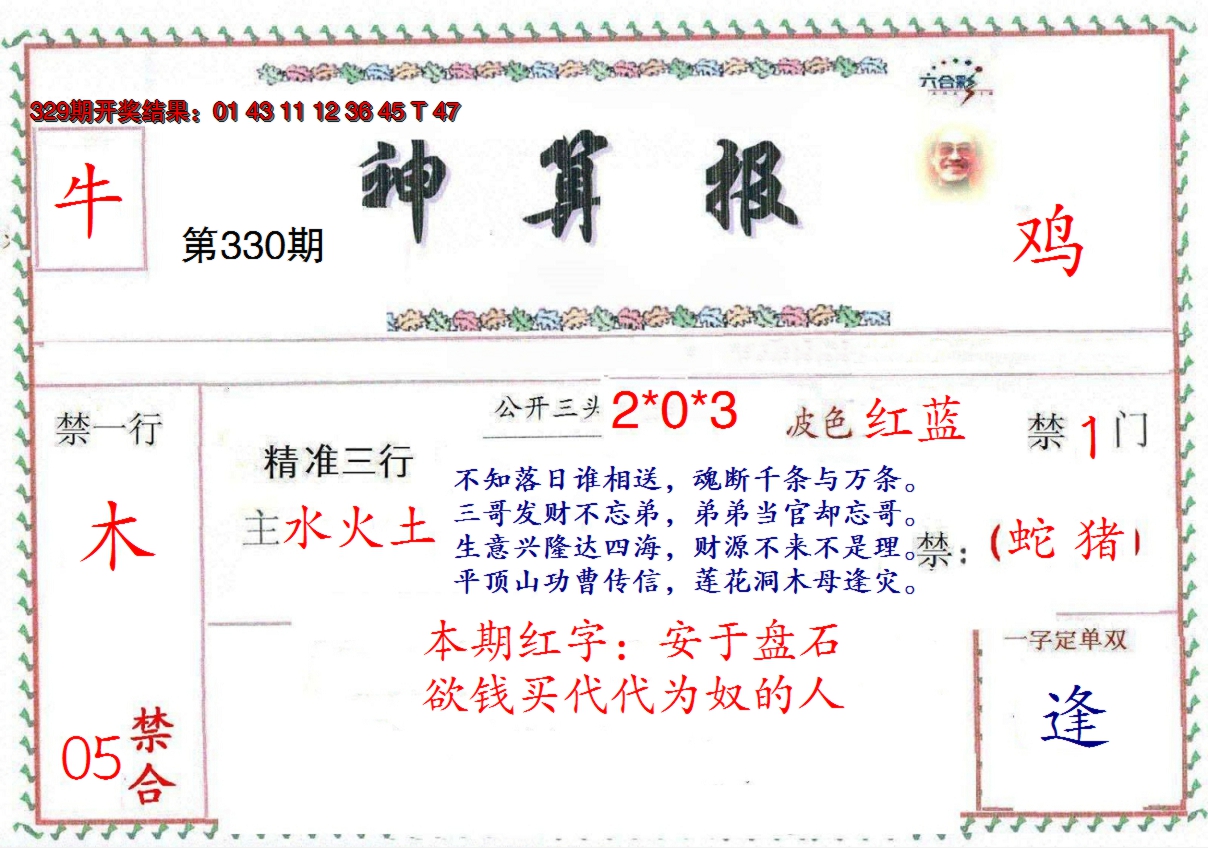 六合彩
329期开奖结果：01 43 11 12 36 45 T 47
神算报
牛
第330期
鸡
禁一行
木
05
禁合
公开三头 2*0*3
波色 红蓝
禁1门
精准三行
主水火土
不知落日谁相送，魂断千条与万条。
三哥发财不忘弟，弟弟当官却忘哥。
生意兴隆达四海，财源不来不是理。
平顶山功曹传信，莲花洞木母逢灾。
禁：（蛇 猪）
本期红字：安于盘石
欲钱买代代为奴的人
一字定单双
逢